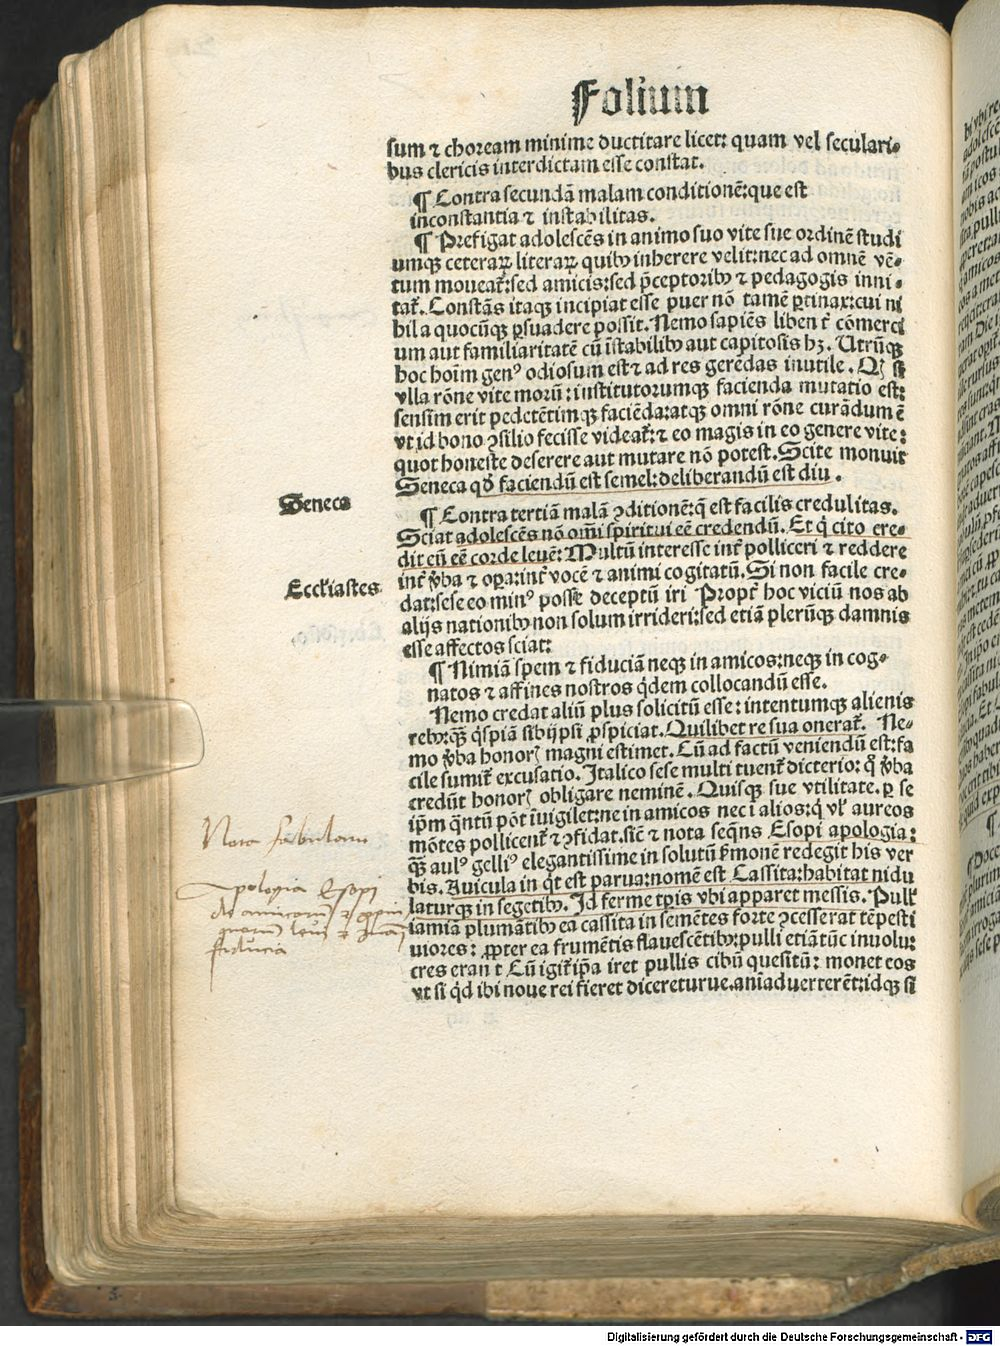 Folium
sum ⁊ choream minime ductitare licet: quam vel seculari⸗
bus clericis interdictam esse constat.
¶ Contra secundā malam conditionē: que est
inconstantia ⁊ instabilitas.
¶ Prefigat adolescēs in animo suo vite sue ordinē studi
umqꝫ ceteraꝝ literaꝝ quibꝰ inherere velit: nec ad omnē vē⸗
tum moueat᷑: sed amicis: sed p̄ceptoribꝰ ⁊ pedagogis inni⸗
tat᷑. Constās itaqꝫ incipiat esse puer nō tamē ꝑtinax: cui ni
hil a quocūqꝫ ꝑsuadere possit. Nemo sapiēs liben t᷑ cōmerci
um aut familiaritatē cū īstabilibꝰ aut capitosis hꝫ. Utrūqꝫ
hoc hoīm genꝰ odiosum est ⁊ ad res gerēdas inutile. Qꝫ si
vlla rōne vite morū: institutorumqꝫ facienda mutatio est:
sensim erit pedetētimqꝫ faciēda: atqꝫ omni rōne curādum ē
vt id bono ꝯsilio fecisse videat᷑: ⁊ eo magis in eo genere vite:
quot honeste deserere aut mutare nō potest. Scite monuit
Seneca qđ faciendū est semel: deliberandū est diu.
Seneca
¶ Contra tertiā malā ꝯditionē: q̄ est facilis credulitas.
Sciat adolescēs nō om̄i spiritui eē credendū. Et q̇ cito cre⸗
dit eū eē corde leuē: Multū interesse int᷑ polliceri ⁊ reddere
int᷑ v̄ba ⁊ oꝑa: int᷑ vocē ⁊ animi cogitatū. Si non facile cre⸗
Eccl'iastes
dat: sese eo minꝰ posse deceptū iri Propt᷑ hoc viciū nos ab
alijs nationibꝰ non solum irrideri: sed etiā plerūqꝫ damnis
esse affectos sciat:
¶ Nimiā spem ⁊ fiduciā neqꝫ in amicos: neqꝫ in cog⸗
natos ⁊ affines nostros q̇dem collocandū esse.
Nemo credat aliū plus solicitū esse: intentumqꝫ alienis
rebꝰ: qꝫ̄ q̇spiā sibijpsi ꝓspiciat. Quilibet re sua onerat᷑. Ne⸗
mo v̄ba honorꝭ magni estimet. Cū ad factū veniendū est: fa
cile sumit᷑ excusatio. Italico sese multi tuent᷑ dicterio: q̄ v̄ba
credūt honorꝭ obligare neminē. Quisqꝫ sue vtilitate. ꝑ se
ip̄m q̄ntū pōt īuigilet: ne in amicos nec i alios: q̇ vl' aureos
mōtes pollicent᷑ ⁊ ꝯfidat. sic̄ ⁊ nota seq̄ns Esopi apologia:
qꝫ̄ aulꝰ gelliꝰ elegantissime in solutū s̄monē redegit his ver
bis. Auicula in q̇t est parua: nomē est Cassita: habitat nidu
laturqꝫ in segetibꝰ. Id ferme tꝑis vbi apparet messis. Pull'
iamiā plumātibꝰ ea cassita in semētes forte ꝯcesserat tēpesti
uiores: ꝓpter ea frumētis flauescētibꝰ: pulli etiā tūc inuolu:
cres eran t Cū igit᷑ ip̄a iret pullis cibū quesitū: monet eos
vt si q̇d ibi noue rei fieret diceretur ue. aniaduerterēt: idqꝫ si
Nota fabulam
Apologia Esopi
de amicorum ⁊
fiducia
Digitalisierung gefördert durch die Deutsche Forschungsgemeinschaft - DFG